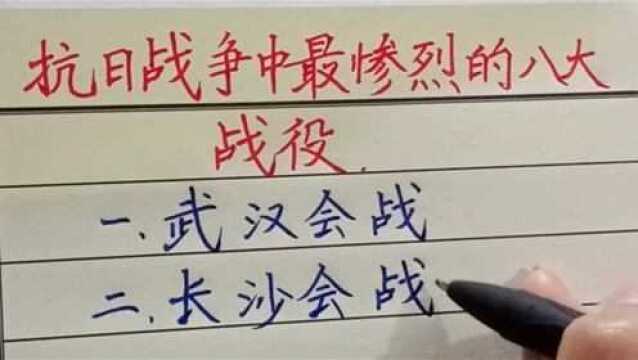 抗日战争中最惨烈的八大
战役.
一.武汉会战
二.长沙会战